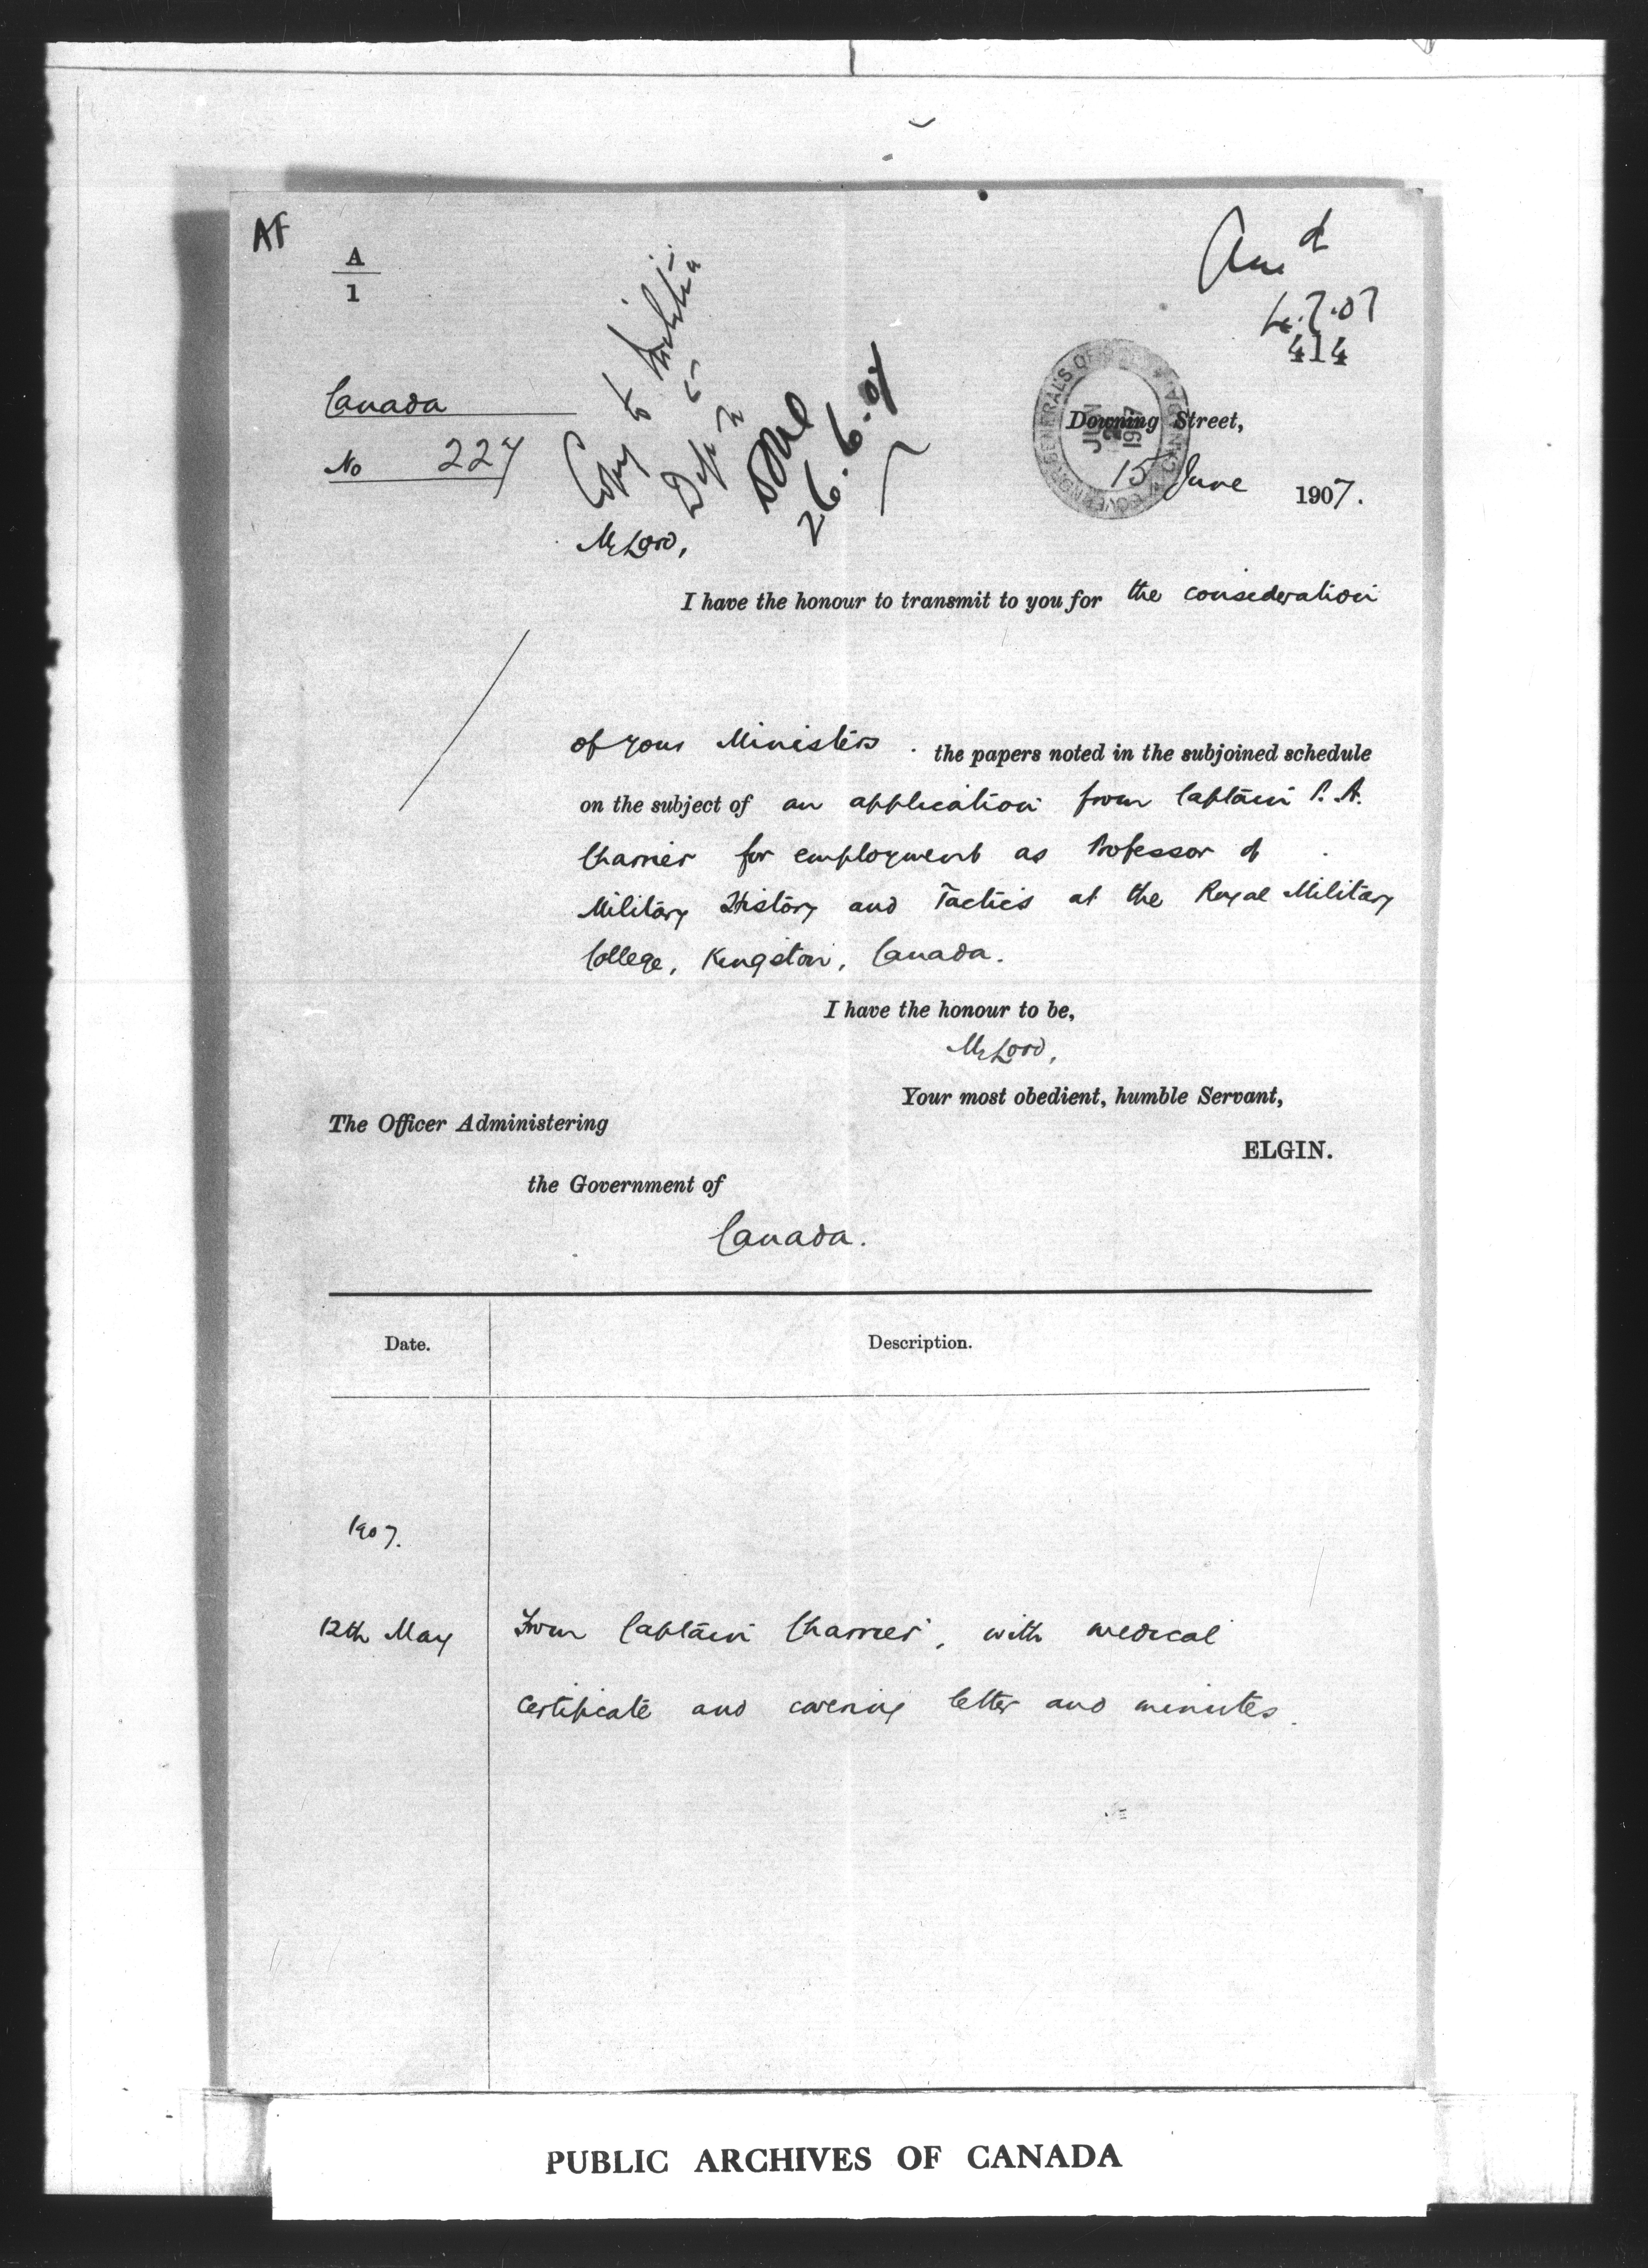 AF
A
1
Ansd
4.7.07
414
Copy to Militia
Dept
26.6.07
Canada
No 227
GOVERNOR GENERAL'S OFFICE CANADA
JUN
1907
Downing Street,
15 June 1907.
My Lord,
I have the honour to transmit to you for the consideration
of your Ministers . the papers noted in the subjoined schedule
on the subject of an application from Captain P. A.
Charrier for employment as Professor of
Military History and Tactics at the Royal Military
College, Kingston, Canada.
I have the honour to be,
My Lord,
Your most obedient, humble Servant,
ELGIN.
The Officer Administering
the Government of
Canada.
Date. Description.
1907.
12th May From Captain Charrier, with medical
certificate and covering letter and minutes.
PUBLIC ARCHIVES OF CANADA